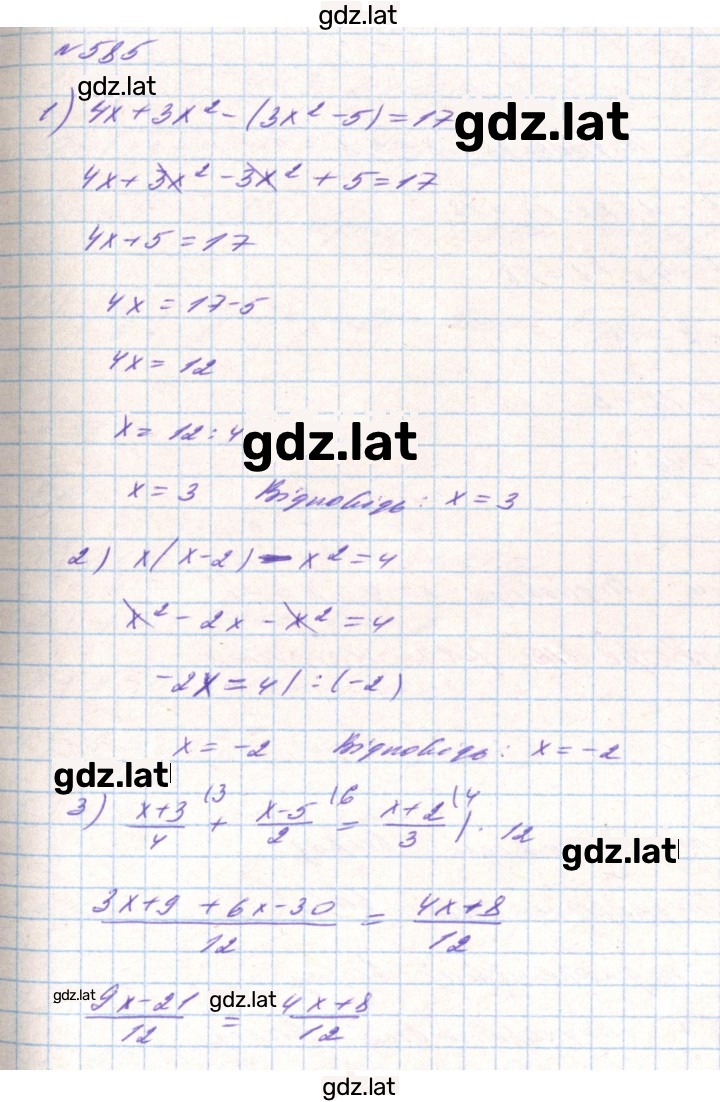 gdz.lat
№585
gdz.lat
1) 4x+3x²-(3x²-5)=17
gdz.lat
4x+3x²-3x²+5=17
4x+5=17
4x=17-5
4x=12
x=12:4
gdz.lat
x=3 Відповідь: x=3
2) x(x-2)-x²=4
x²-2x-x²=4
-2x=4|:(-2)
x=-2 Відповідь: x=-2
gdz.lat
3) (x+3)/4 \3 + (x-5)/2 \6 = (x+2)/3 \4 |·12
gdz.lat
(3x+9+6x-30)/12 = (4x+8)/12
gdz.lat
gdz.lat
(9x-21)/12 = (4x+8)/12
gdz.lat